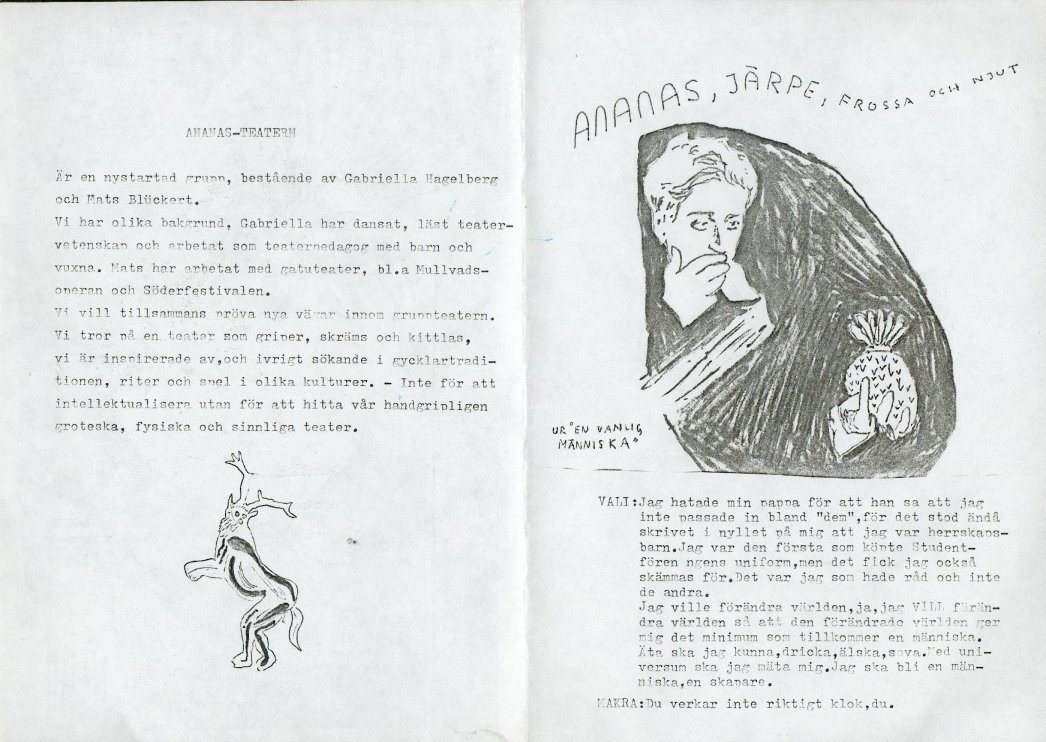 ANANAS-TEATERN
Är en nystartad grupp, bestående av Gabriella Hagelberg
och Mats Blückert.
Vi har olika bakgrund, Gabriella har dansat, läst teater-
vetenskap och arbetat som teaterpedagog med barn och
vuxna. Mats har arbetat med gatuteater, bl.a Mullvads-
operan och Söderfestivalen.
Vi vill tillsammans pröva nya vägar innom gruppteatern.
Vi tror på en teater som griper, skräms och kittlas,
vi är inspirerade av,och ivrigt sökande i gycklartradi-
tionen, riter och spel i olika kulturer. - Inte för att
intellektualisera utan för att hitta vår handgripligen
groteska, fysiska och sinnliga teater.
ANANAS, JÄRPE, FROSSA OCH NJUT
UR "EN VANLIG
MÄNNISKA"
VALI:Jag hatade min pappa för att han sa att jag
inte passade in bland "dem",för det stod ändå
skrivet i nyllet på mig att jag var herrskaps-
barn.Jag var den första som köpte Student-
fören ngens uniform,men det fick jag också
skämmas för.Det var jag som hade råd och inte
de andra.
Jag ville förändra världen,ja,jag VILL förän-
dra världen så att den förändrade världen ger
mig det minimum som tillkommer en människa.
Äta ska jag kunna,dricka,älska,sova.Med uni-
versum ska jag mäta mig.Jag ska bli en män-
niska,en skapare.
MAKRA:Du verkar inte riktigt klok,du.